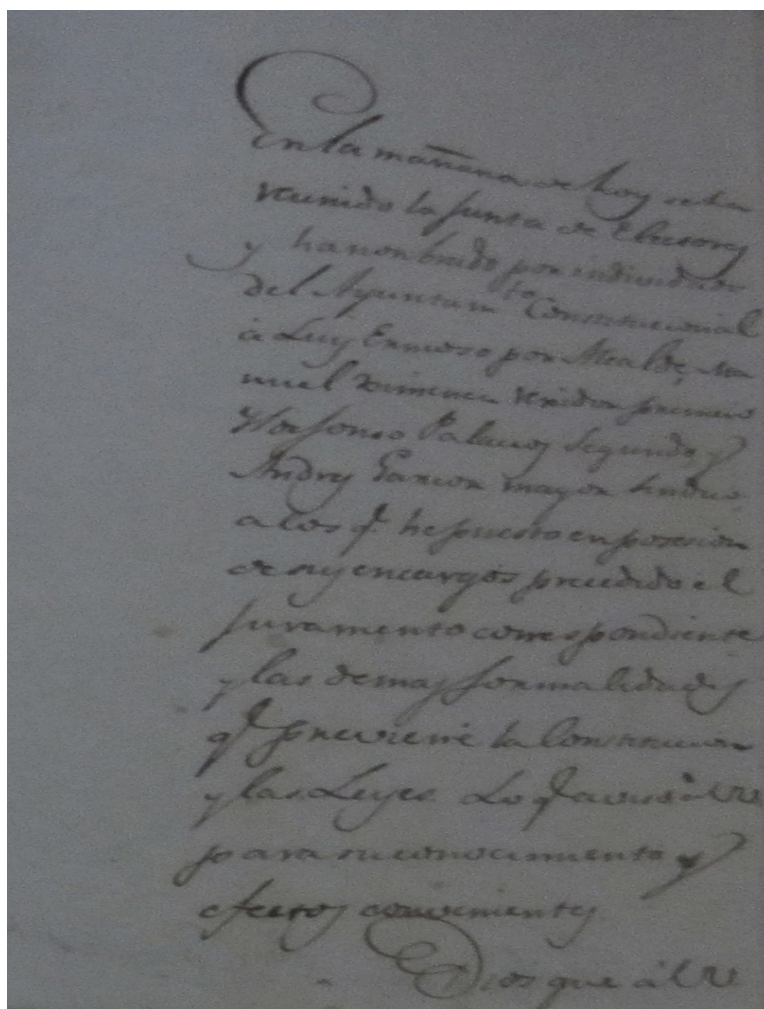 En la mañana de hoy se ha
reunido la Junta de Electores
y ha nonbrado por individuos
del Ayuntam.to Constitucional
á Luis Ermoso por Alcalde, Ma
nuel Ximenez rexidor primero
Yldefonso Palacios Segundo, y
Andres Garcia mayor sindico
a los q.e he puesto en posesion
de sus encargos precedido el
juramento correspondiente
y las demas formalidades
q.e previene la Constitucion
y las Leyes. Lo q.e aviso á V.
para su conocimiento y
efectos convenientes
Dios gue á V.